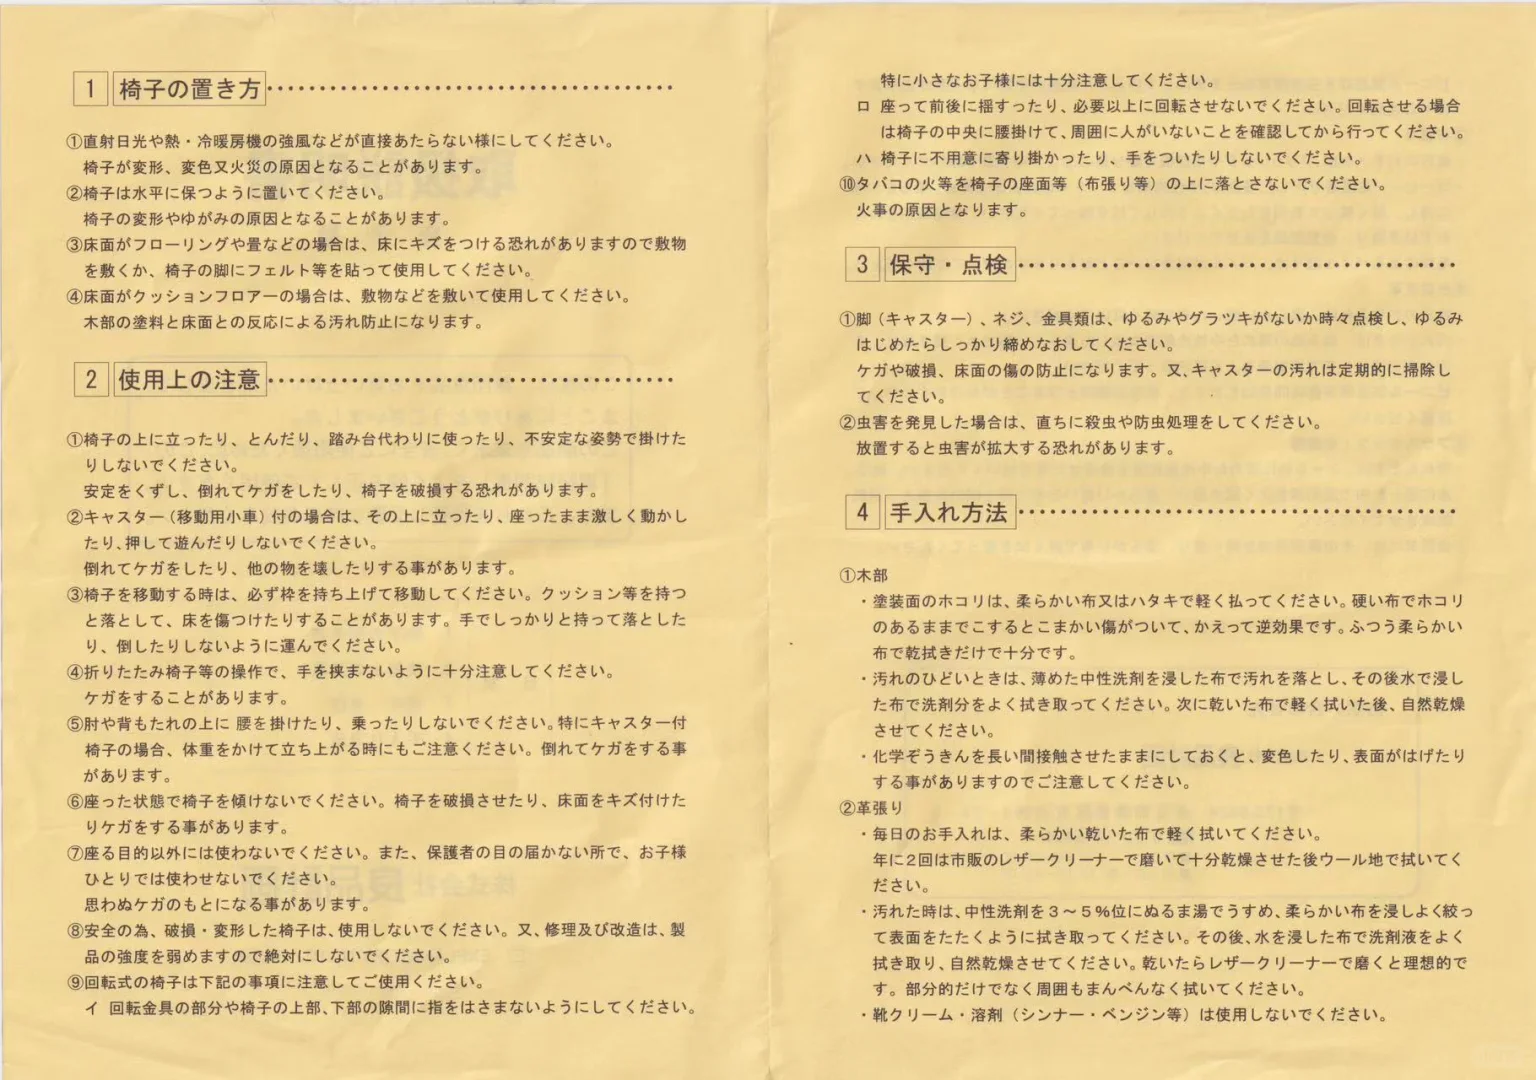 1 椅子の置き方
①直射日光や熱・冷暖房機の強風などが直接あたらない様にしてください。
椅子が変形、変色又火災の原因となることがあります。
②椅子は水平に保つように置いてください。
椅子の変形やゆがみの原因となることがあります。
③床面がフローリングや畳などの場合は、床にキズをつける恐れがありますので敷物
を敷くか、椅子の脚にフェルト等を貼って使用してください。
④床面がクッションフロアーの場合は、敷物などを敷いて使用してください。
木部の塗料と床面との反応による汚れ防止になります。
2 使用上の注意
①椅子の上に立ったり、とんだり、踏み台代わりに使ったり、不安定な姿勢で掛けた
りしないでください。
安定をくずし、倒れてケガをしたり、椅子を破損する恐れがあります。
②キャスター(移動用小車)付の場合は、その上に立ったり、座ったまま激しく動かし
たり、押して遊んだりしないでください。
倒れてケガをしたり、他の物を壊したりする事があります。
③椅子を移動する時は、必ず枠を持ち上げて移動してください。クッション等を持つ
と落として、床を傷つけたりすることがあります。手でしっかりと持って落とした
り、倒したりしないように運んでください。
④折りたたみ椅子等の操作で、手を挟まないように十分注意してください。
ケガをすることがあります。
⑤肘や背もたれの上に 腰を掛けたり、乗ったりしないでください。特にキャスター付
椅子の場合、体重をかけて立ち上がる時にもご注意ください。倒れてケガをする事
があります。
⑥座った状態で椅子を傾けないでください。椅子を破損させたり、床面をキズ付けた
りケガをする事があります。
⑦座る目的以外には使わないでください。また、保護者の目の届かない所で、お子様
ひとりでは使わせないでください。
思わぬケガのもとになる事があります。
⑧安全の為、破損・変形した椅子は、使用しないでください。又、修理及び改造は、製
品の強度を弱めますので絶対にしないでください。
⑨回転式の椅子は下記の事項に注意してご使用ください。
イ 回転金具の部分や椅子の上部、下部の隙間に指をはさまないようにしてください。
特に小さなお子様には十分注意してください。
ロ 座って前後に揺すったり、必要以上に回転させないでください。回転させる場合
は椅子の中央に腰掛けて、周囲に人がいないことを確認してから行ってください。
ハ 椅子に不用意に寄り掛かったり、手をついたりしないでください。
⑩タバコの火等を椅子の座面等(布張り等)の上に落とさないでください。
火事の原因となります。
3 保守・点検
①脚(キャスター)、ネジ、金具類は、ゆるみやグラツキがないか時々点検し、ゆるみ
はじめたらしっかり締めなおしてください。
ケガや破損、床面の傷の防止になります。又、キャスターの汚れは定期的に掃除し
てください。
②虫害を発見した場合は、直ちに殺虫や防虫処理をしてください。
放置すると虫害が拡大する恐れがあります。
4 手入れ方法
①木部
・塗装面のホコリは、柔らかい布又はハタキで軽く払ってください。硬い布でホコリ
のあるままでこするとこまかい傷がついて、かえって逆効果です。ふつう柔らかい
布で乾拭きだけで十分です。
・汚れのひどいときは、薄めた中性洗剤を浸した布で汚れを落とし、その後水で浸し
た布で洗剤分をよく拭き取ってください。次に乾いた布で軽く拭いた後、自然乾燥
させてください。
・化学ぞうきんを長い間接触させたままにしておくと、変色したり、表面がはげたり
する事がありますのでご注意してください。
②革張り
・毎日のお手入れは、柔らかい乾いた布で軽く拭いてください。
年に2回は市販のレザークリーナーで磨いて十分乾燥させた後ウール地で拭いてく
ださい。
・汚れた時は、中性洗剤を3〜5%位にぬるま湯でうすめ、柔らかい布を浸しよく絞っ
て表面をたたくように拭き取ってください。その後、水を浸した布で洗剤液をよく
拭き取り、自然乾燥させてください。乾いたらレザークリーナーで磨くと理想的で
す。部分的だけでなく周囲もまんべんなく拭いてください。
・靴クリーム・溶剤(シンナー・ベンジン等)は使用しないでください。